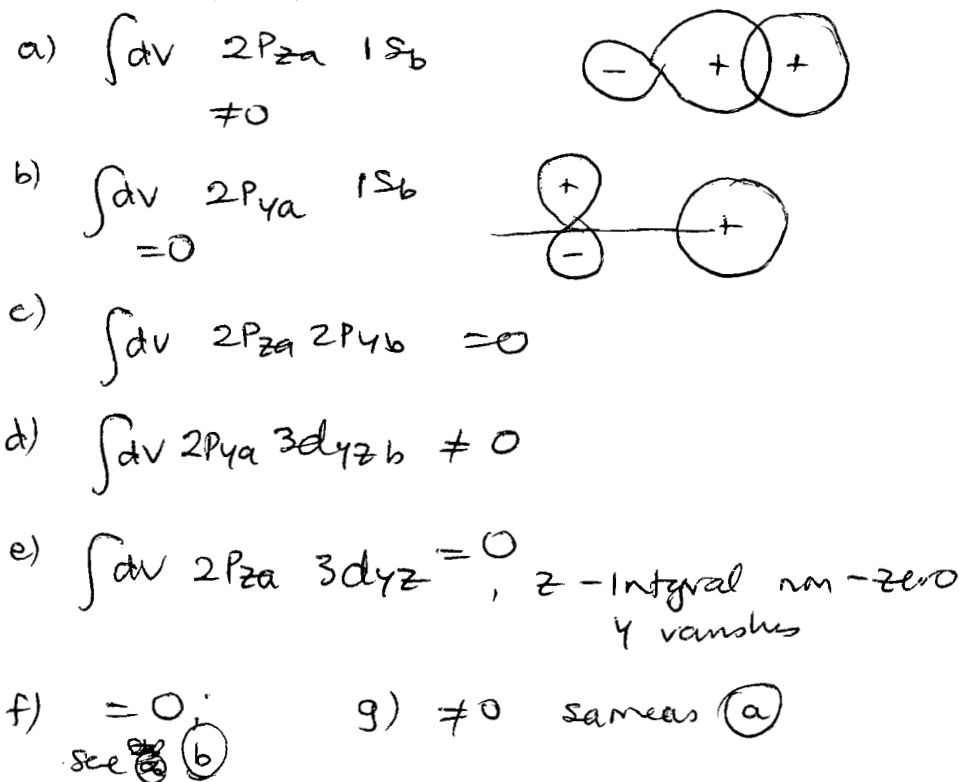 a) ∫dv 2Pza 1Sb - + +
≠0
b) ∫dv 2Pya 1Sb + - +
=0
c) ∫dv 2Pza 2Pyb =0
d) ∫dv 2Pya 3dyzb ≠ 0
e) ∫dv 2Pza 3dyz = 0, z-Intgral non-zero
y vanshes
f) = 0; g) ≠0 sameas (a)
see (b)